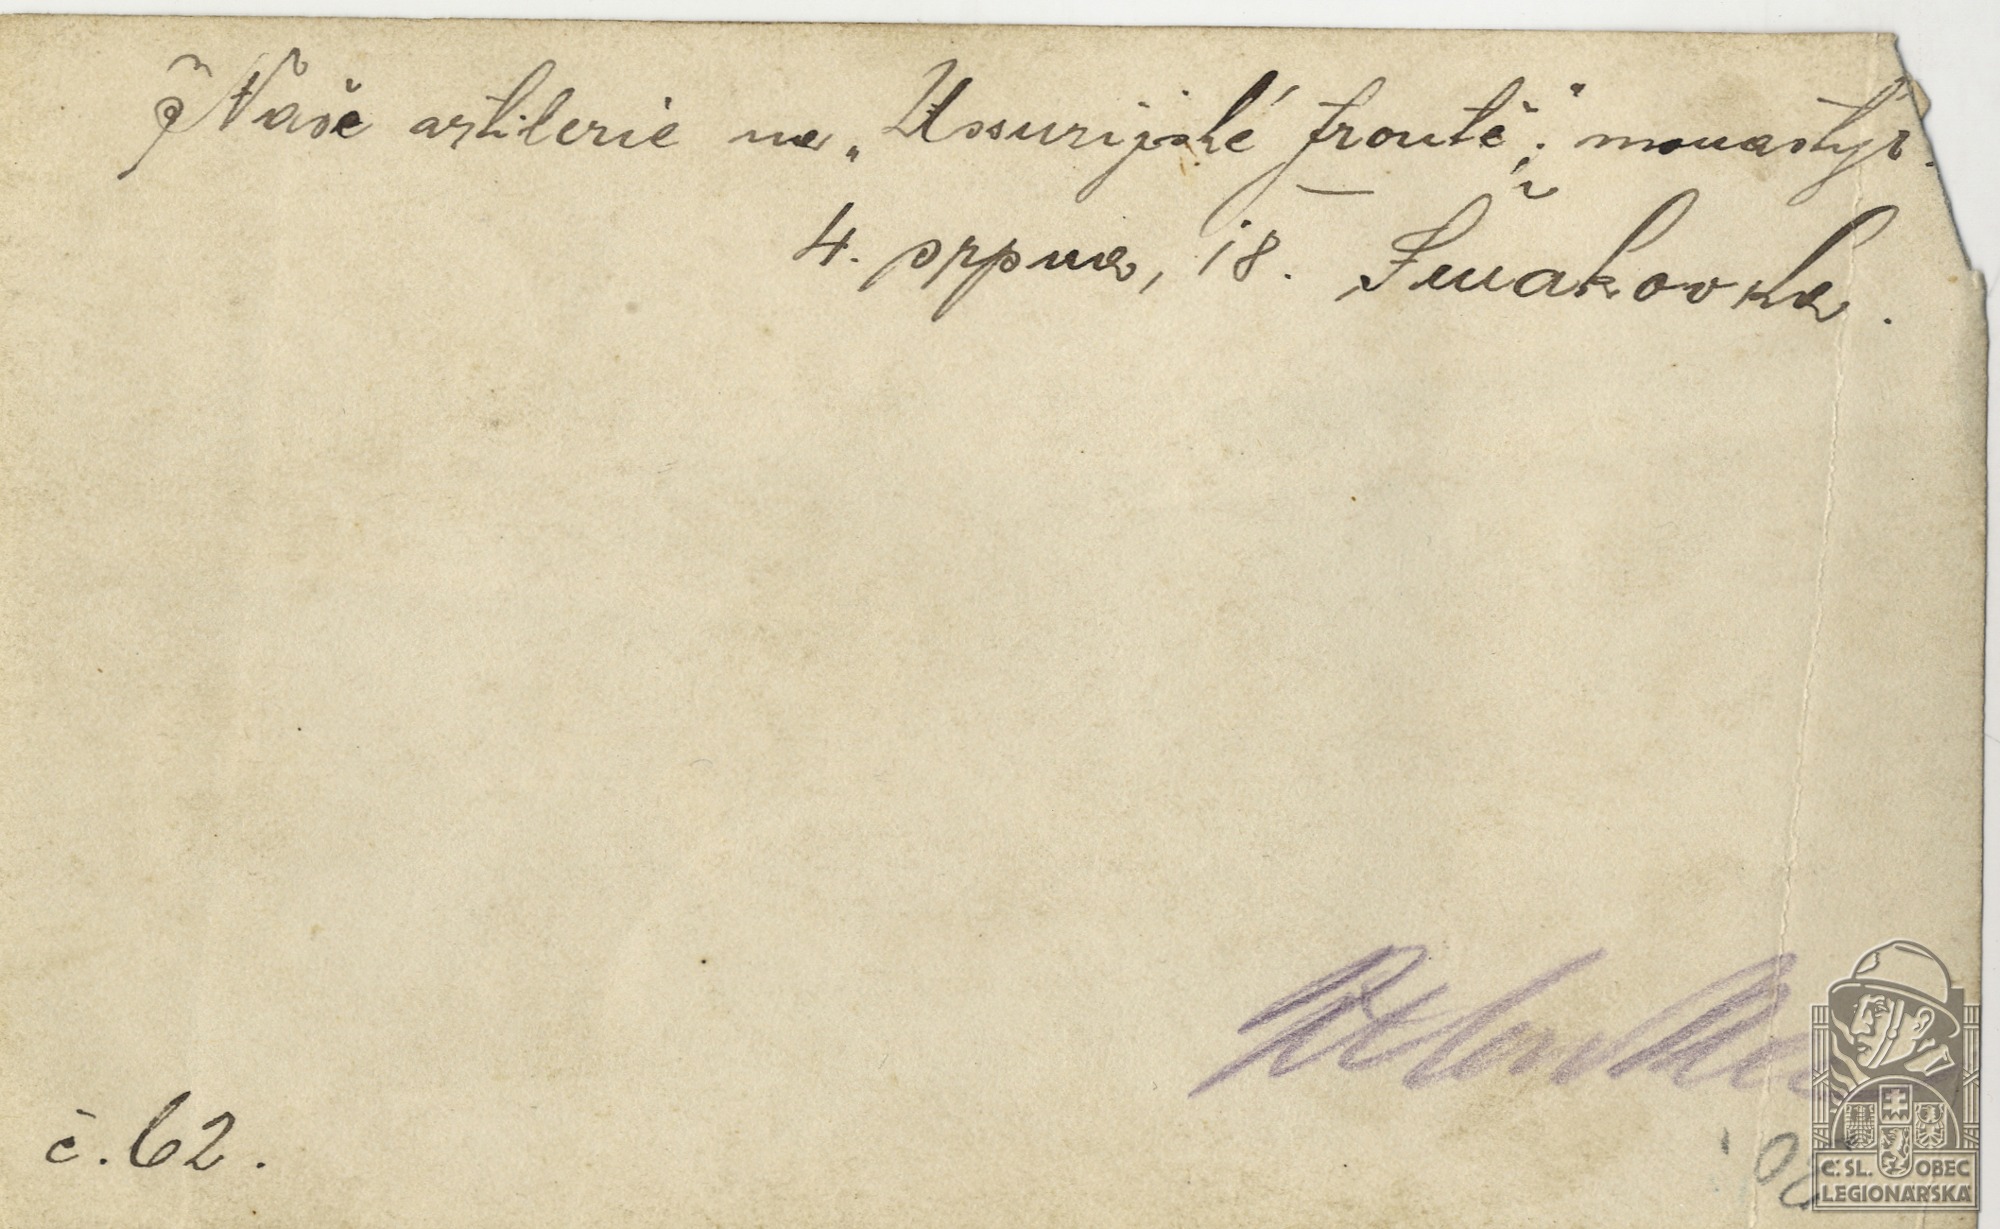 Naše artilerie na „Ussurijské frontě", monastýr.
4. srpna, 18. Šmakovka.
č. 62.
Č:SL. OBEC
LEGIONÁŘSKÁ